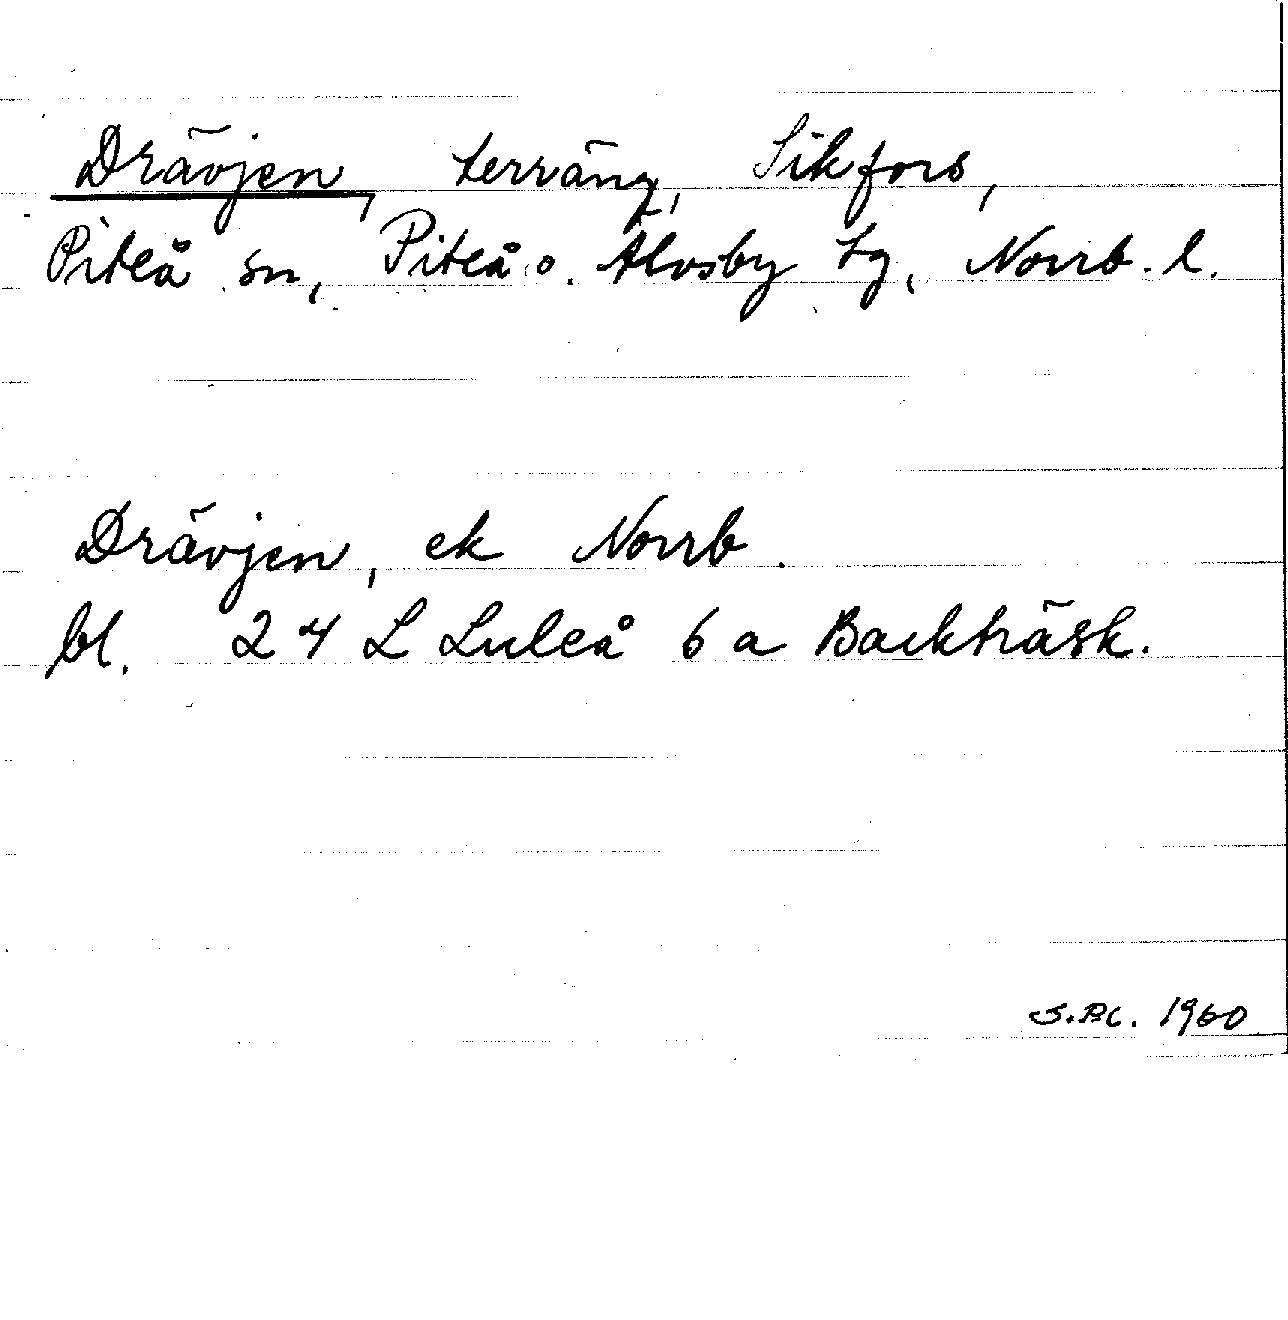 Drävjen, terräng, Sikfors,
Piteå sn, Piteå o. Älvsby tg, Norrb. l.
Drävjen, ek Norrb.
bl. 24 L Luleå 6 a Backträsk.
1960